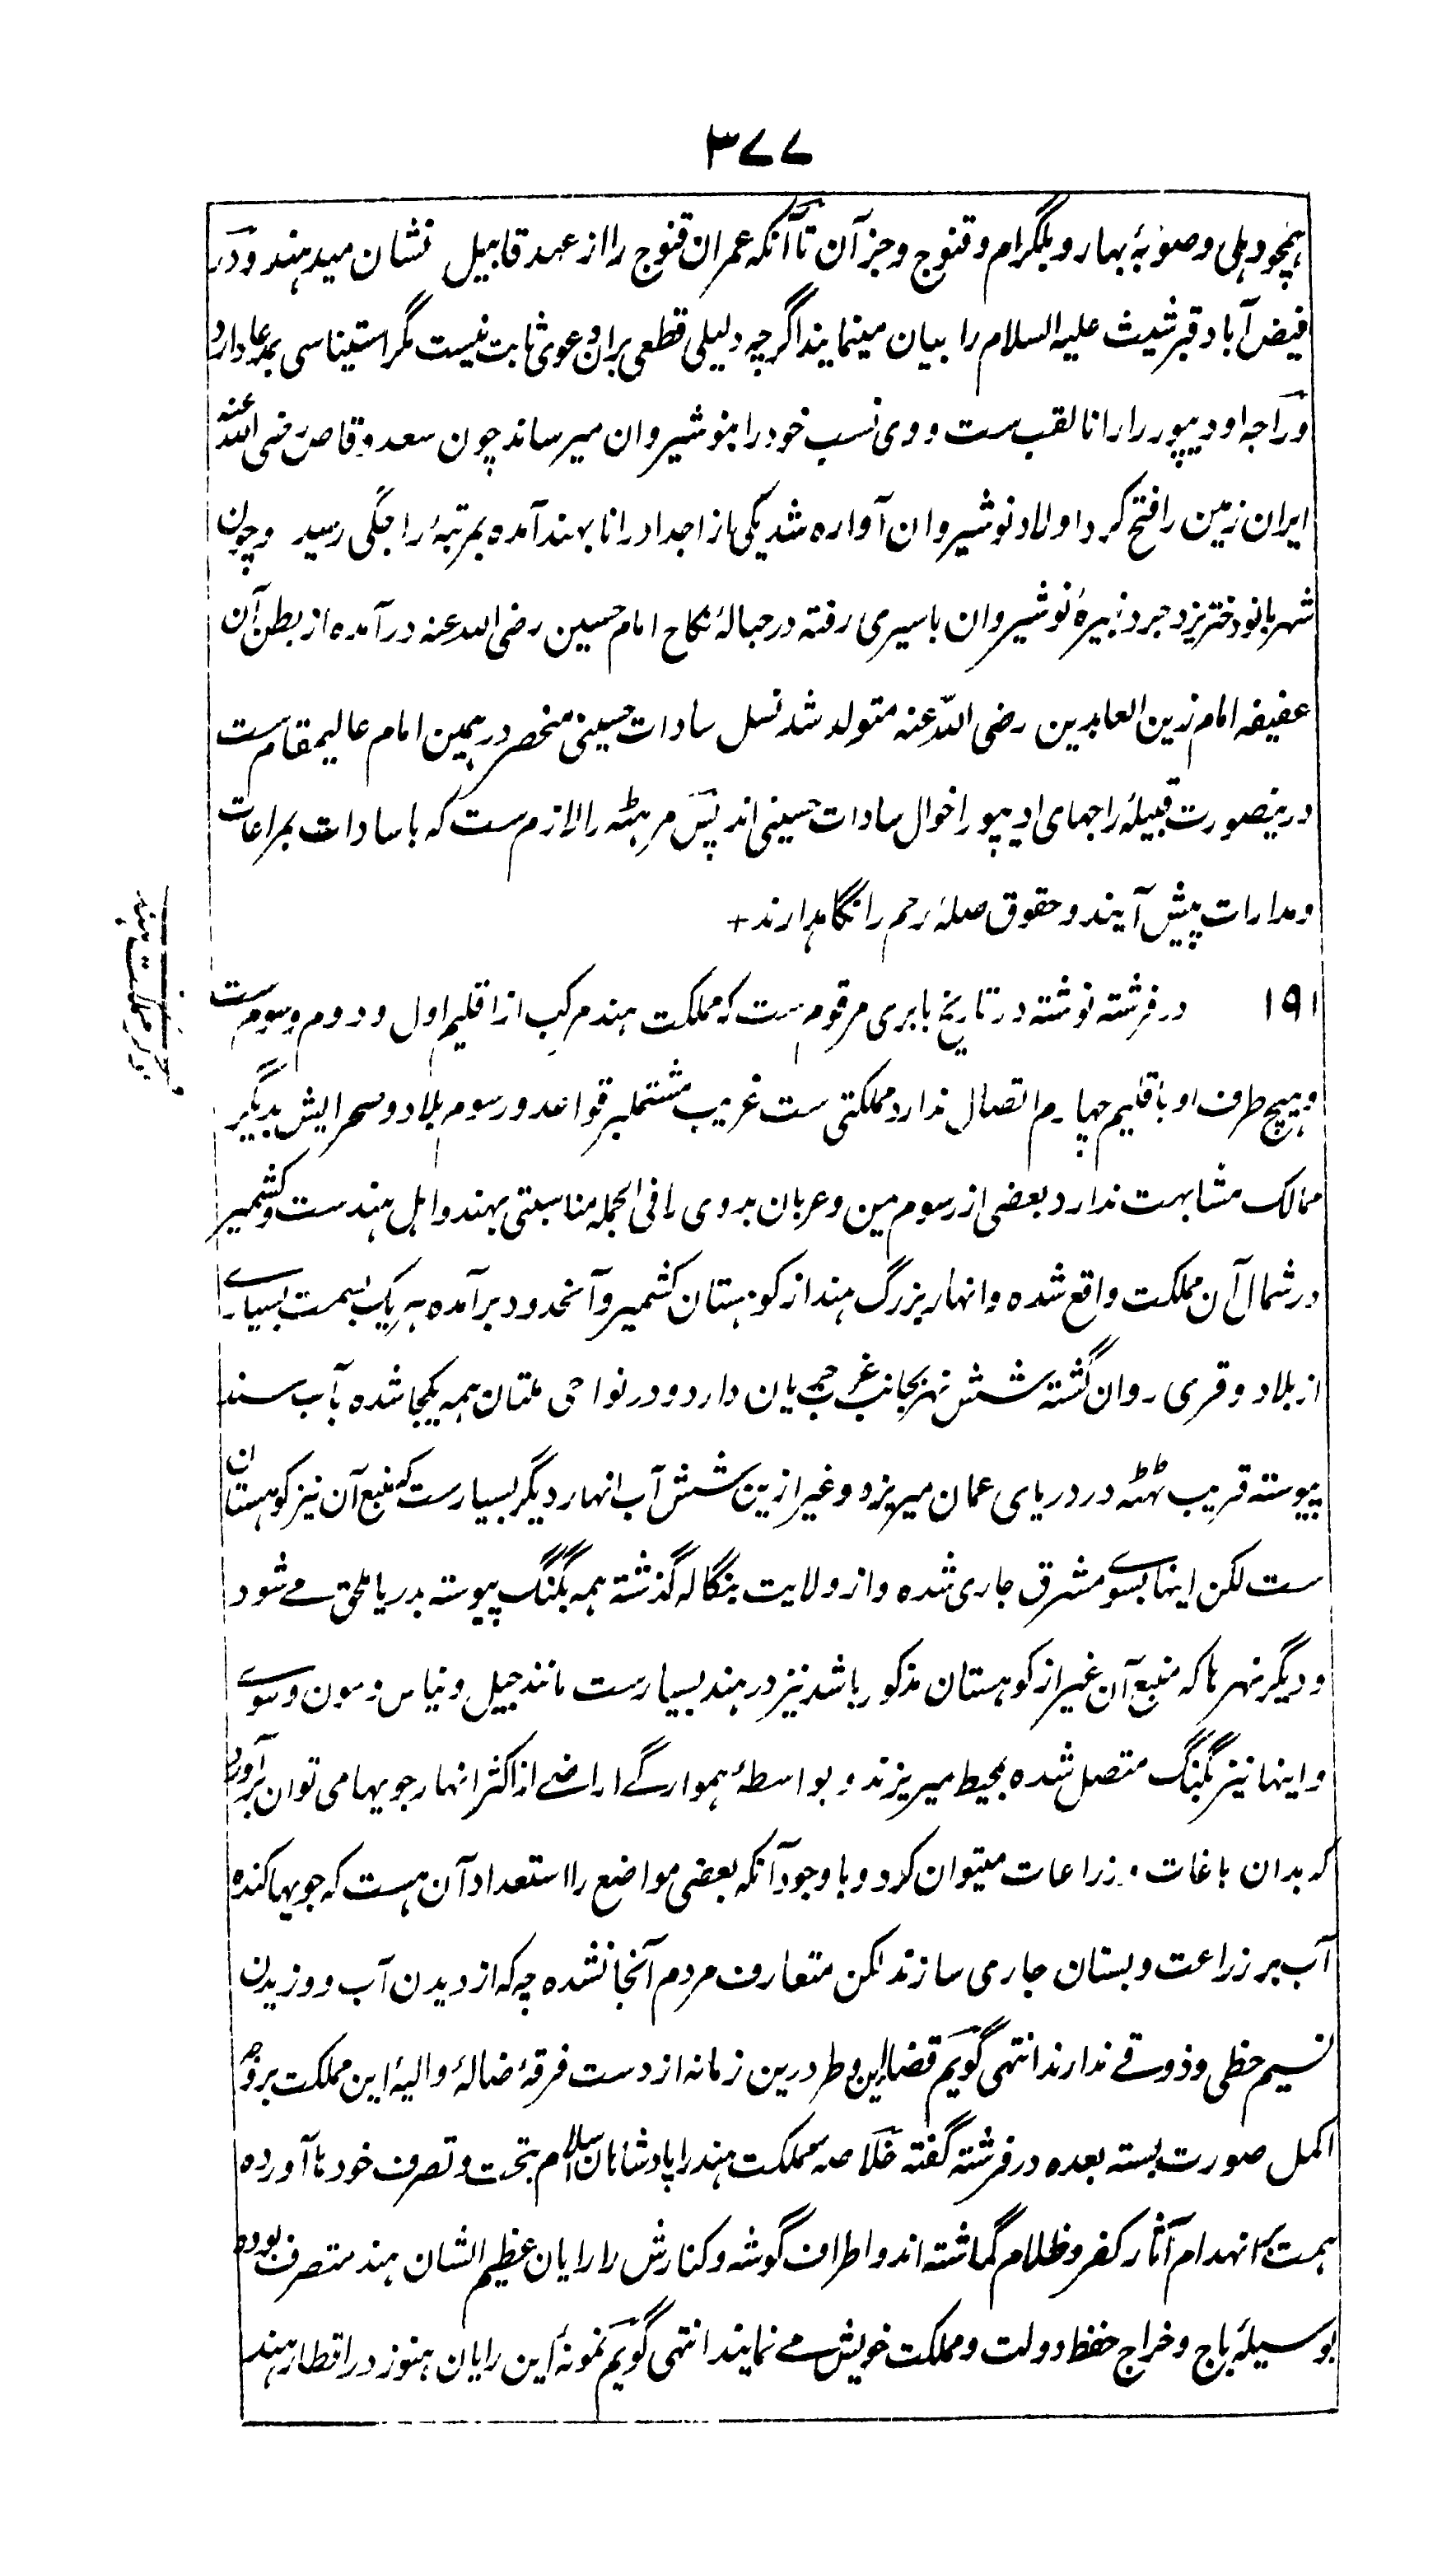 ۳۷۷
ہمچو دہلی و صوبۂ بہار و بلگرام و قنوج و جز آن تا آنکہ عمران قنوج را از عہد قابیل نشان میدہند و در
فیض آباد قبر شیث علیہ السلام را بیان مینمایند اگرچہ دلیلی قطعی بران دعوی ثابت نیست مگر استیناسی بمدعا دارد
و راجہ اودیپور را رانا لقب ست و وی نسب خود را بنوشیروان میرساند چون سعد وقاص رضی اللہ عنہ
ایران زمین را فتح کرد اولاد نوشیروان آوارہ شد یکی از اجداد رانا بہند آمدہ بمرتبۂ راجگی رسید و چون
شہربانو دختر یزدجرد نبیرۂ نوشیروان باسیری رفتہ در حبالۂ نکاح امام حسین رضی اللہ عنہ در آمدہ از بطن آن
عفیفہ امام زین العابدین رضی اللہ عنہ متولد شد نسل سادات حسینی منحصر در ہمین امام عالیمقام ست
درینصورت قبیلۂ راجہای ادیپور اخوال سادات حسینی اند پس مرہٹہ را لازم ست کہ با سادات بمراعات
و مدارات پیش آیند و حقوق صلۂ رحم را نگاہدارند +
۱۹۱ در فرشتہ نوشتہ در تاریخ بابری مرقوم ست کہ مملکت ہند مرکب از اقلیم اول و دوم و سوم ست
و ہیچ طرف او باقلیم چہارم اتصال ندارد مملکتی ست غریب مشتملبر قواعد و رسوم بلاد و صحرایش بدیگر
ممالک مشابہت ندارد بعضی از رسوم یمن و عربان بدوی را فی الجملہ مناسبتی بہند و اہل ہند ست و کشمیر
در شمال آن مملکت واقع شدہ و انہار بزرگ ہند از کوہستان کشمیر و آنحدود برآمدہ ہر یک بسمت بسیارے
از بلاد و قری روان گشتہ شش نہر بجانب غرب جریان دارد و در نواحی ملتان ہمہ یکجا شدہ بآب سند
پیوستہ قریب ٹھٹہ در دریای عمان میریزد و غیر ازین شش آب انہار دیگر بسیارست کہ منبع آن نیز کوہستان
ست لکن اینہا بسوے مشرق جاری شدہ و از ولایت بنگالہ گذشتہ ہمہ بگنگ پیوستہ بدریا ملحق مے شود
و دیگر نہرہا کہ منبع آن غیر از کوہستان مذکور باشد نیز در ہند بسیارست مانند چنبل و بنیاس و سون و سوے
و اینہا نیز بگنگ متصل شدہ بمحیط میریزند و بواسطۂ ہموارگے اراضے از اکثر انہار جویہا می توان برآورد
کہ بدان باغات و زراعات میتوان کرد و با وجود آنکہ بعضی مواضع را استعداد آن ہست کہ جویہا کندہ
آب بر زراعت و بستان جاری سازند لکن متعارف مردم آنجا نشدہ چہ کہ از دیدن آب و وزیدن
نسیم حظی و ذوقے ندارند انتہی گویم قضا این وطر درین زمانہ از دست فرقۂ ضالۂ والیۂ این مملکت بروجہ
اکمل صورت بستہ بعدہ در فرشتہ گفتہ خلاصہ مملکت ہند را پادشاہان اسلام بتحت و تصرف خودہا آوردہ
ہمت بر انہدام آثار کفر و ظلام گماشتہ اند و اطراف گوشہ و کنارش را رایان عظیم الشان ہند متصرف بودہ
بوسیلۂ باج و خراج حفظ دولت و مملکت خویش مے نمایند انتہی گویم نمونۂ این رایان ہنوز در اقطار ہند